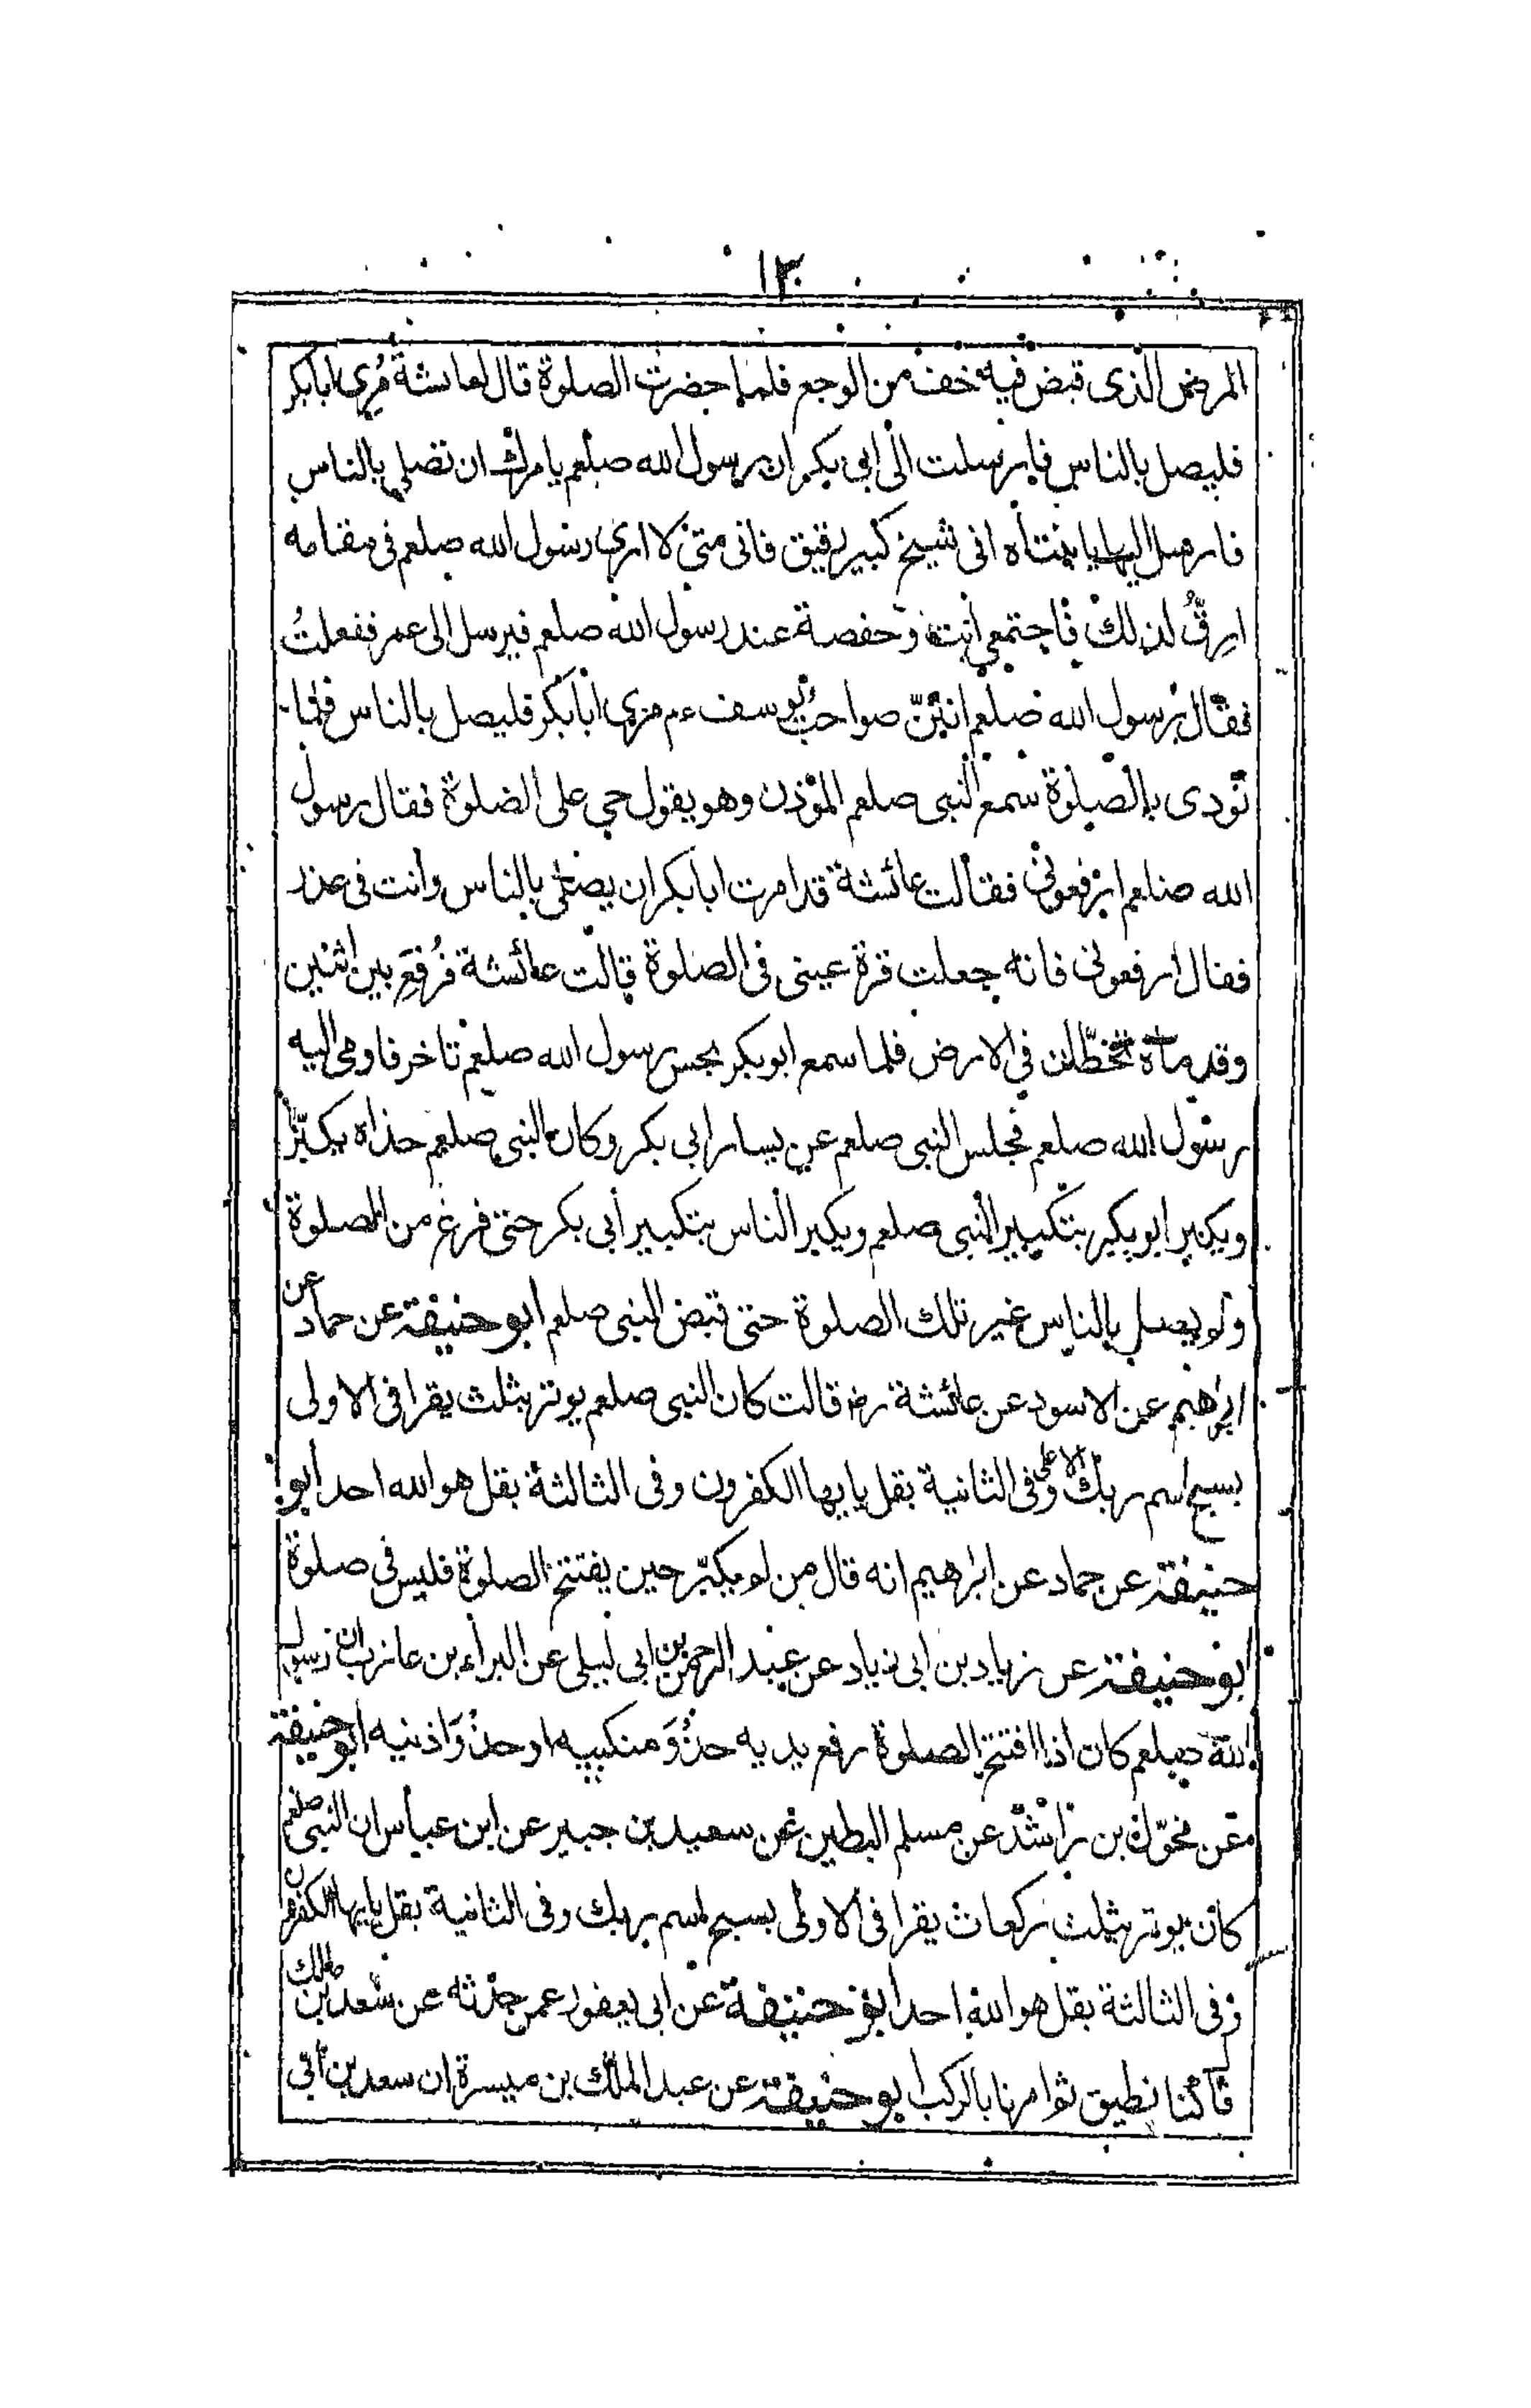 ١٣
المرض الذى قبض فيه خف من الوجع فلما حضرت الصلوة قال لعائشة مُرى ابابكر
فليصل بالناس فارسلت الى ابى بكر ان رسول الله صلعم يامرك ان تصلى بالناس
فارسل اليها يا بنتاه انى شيخ كبير رقيق فانى متى لا ارى رسول الله صلعم فى مقامه
ارِقُّ لذلك فاجتمعى انت وحفصة عند رسول الله صلعم فيرسل الى عمر ففعلتُ
فقال رسول الله صلعم انتنّ صواحب يوسف ءم مرى ابابكر فليصل بالناس فلما
نودى بالصلوة سمع النبى صلعم المؤذن وهو يقول حى على الصلوة فقال رسول
الله صلعم ارفعونى فقالت عائشة قد امرت ابابكر ان يصلى بالناس وانت فى عذر
فقال ارفعونى فانه جعلت قرة عينى فى الصلوة قالت عائشة فرُفِعَ بين اثنين
وقدماه تخطّان فى الارض فلما سمع ابوبكر بحس رسول الله صلعم تاخر فاومى اليه
رسول الله صلعم فجلس النبى صلعم عن يسار ابى بكر وكان النبى صلعم حذاه يكبّر
ويكبر ابو بكر بتكبير النبى صلعم ويكبر الناس بتكبير أبى بكر حتى فرغ من الصلوة
ولم يصل بالناس غير تلك الصلوة حتى قبض النبى صلعم ابو حنيفة عن حماد عن
ابرهيم عن الاسود عن عائشة رض قالت كان النبى صلعم يوتر بثلث يقرا فى الاولى
بسبح اسم ربك الاعلى وفى الثانية بقل يايها الكفرون وفى الثالثة بقل هو الله احد ابو
حنيفة عن حماد عن ابرهيم انه قال من لم يكبّر حين يفتتح الصلوة فليس فى صلوة
ابو حنيفة عن زياد بن ابى زياد عن عبد الرحمن بن ابى ليلى عن البراء بن عازب ان رسول
الله صلعم كان اذا افتتح الصلوة رفع يديه حذُوَ منكبيه او حذُوَ اذنيه ابو حنيفة
عن مخوّل بن راشد عن مسلم البطين عن سعيد بن جبير عن ابن عباس ان النبى صلعم
كان يوتر بثلث ركعات يقرا فى الاولى بسبح اسم ربك وفى الثانية بقل يايها الكفرون
وفى الثالثة بقل هو الله احد ابو حنيفة عن ابى يعفور عمن حدثه عن سعد بن مالك
قال كنا نطبق ثم امرنا بالركب ابو حنيفة عن عبد الملك بن ميسرة ان سعد بن ابى